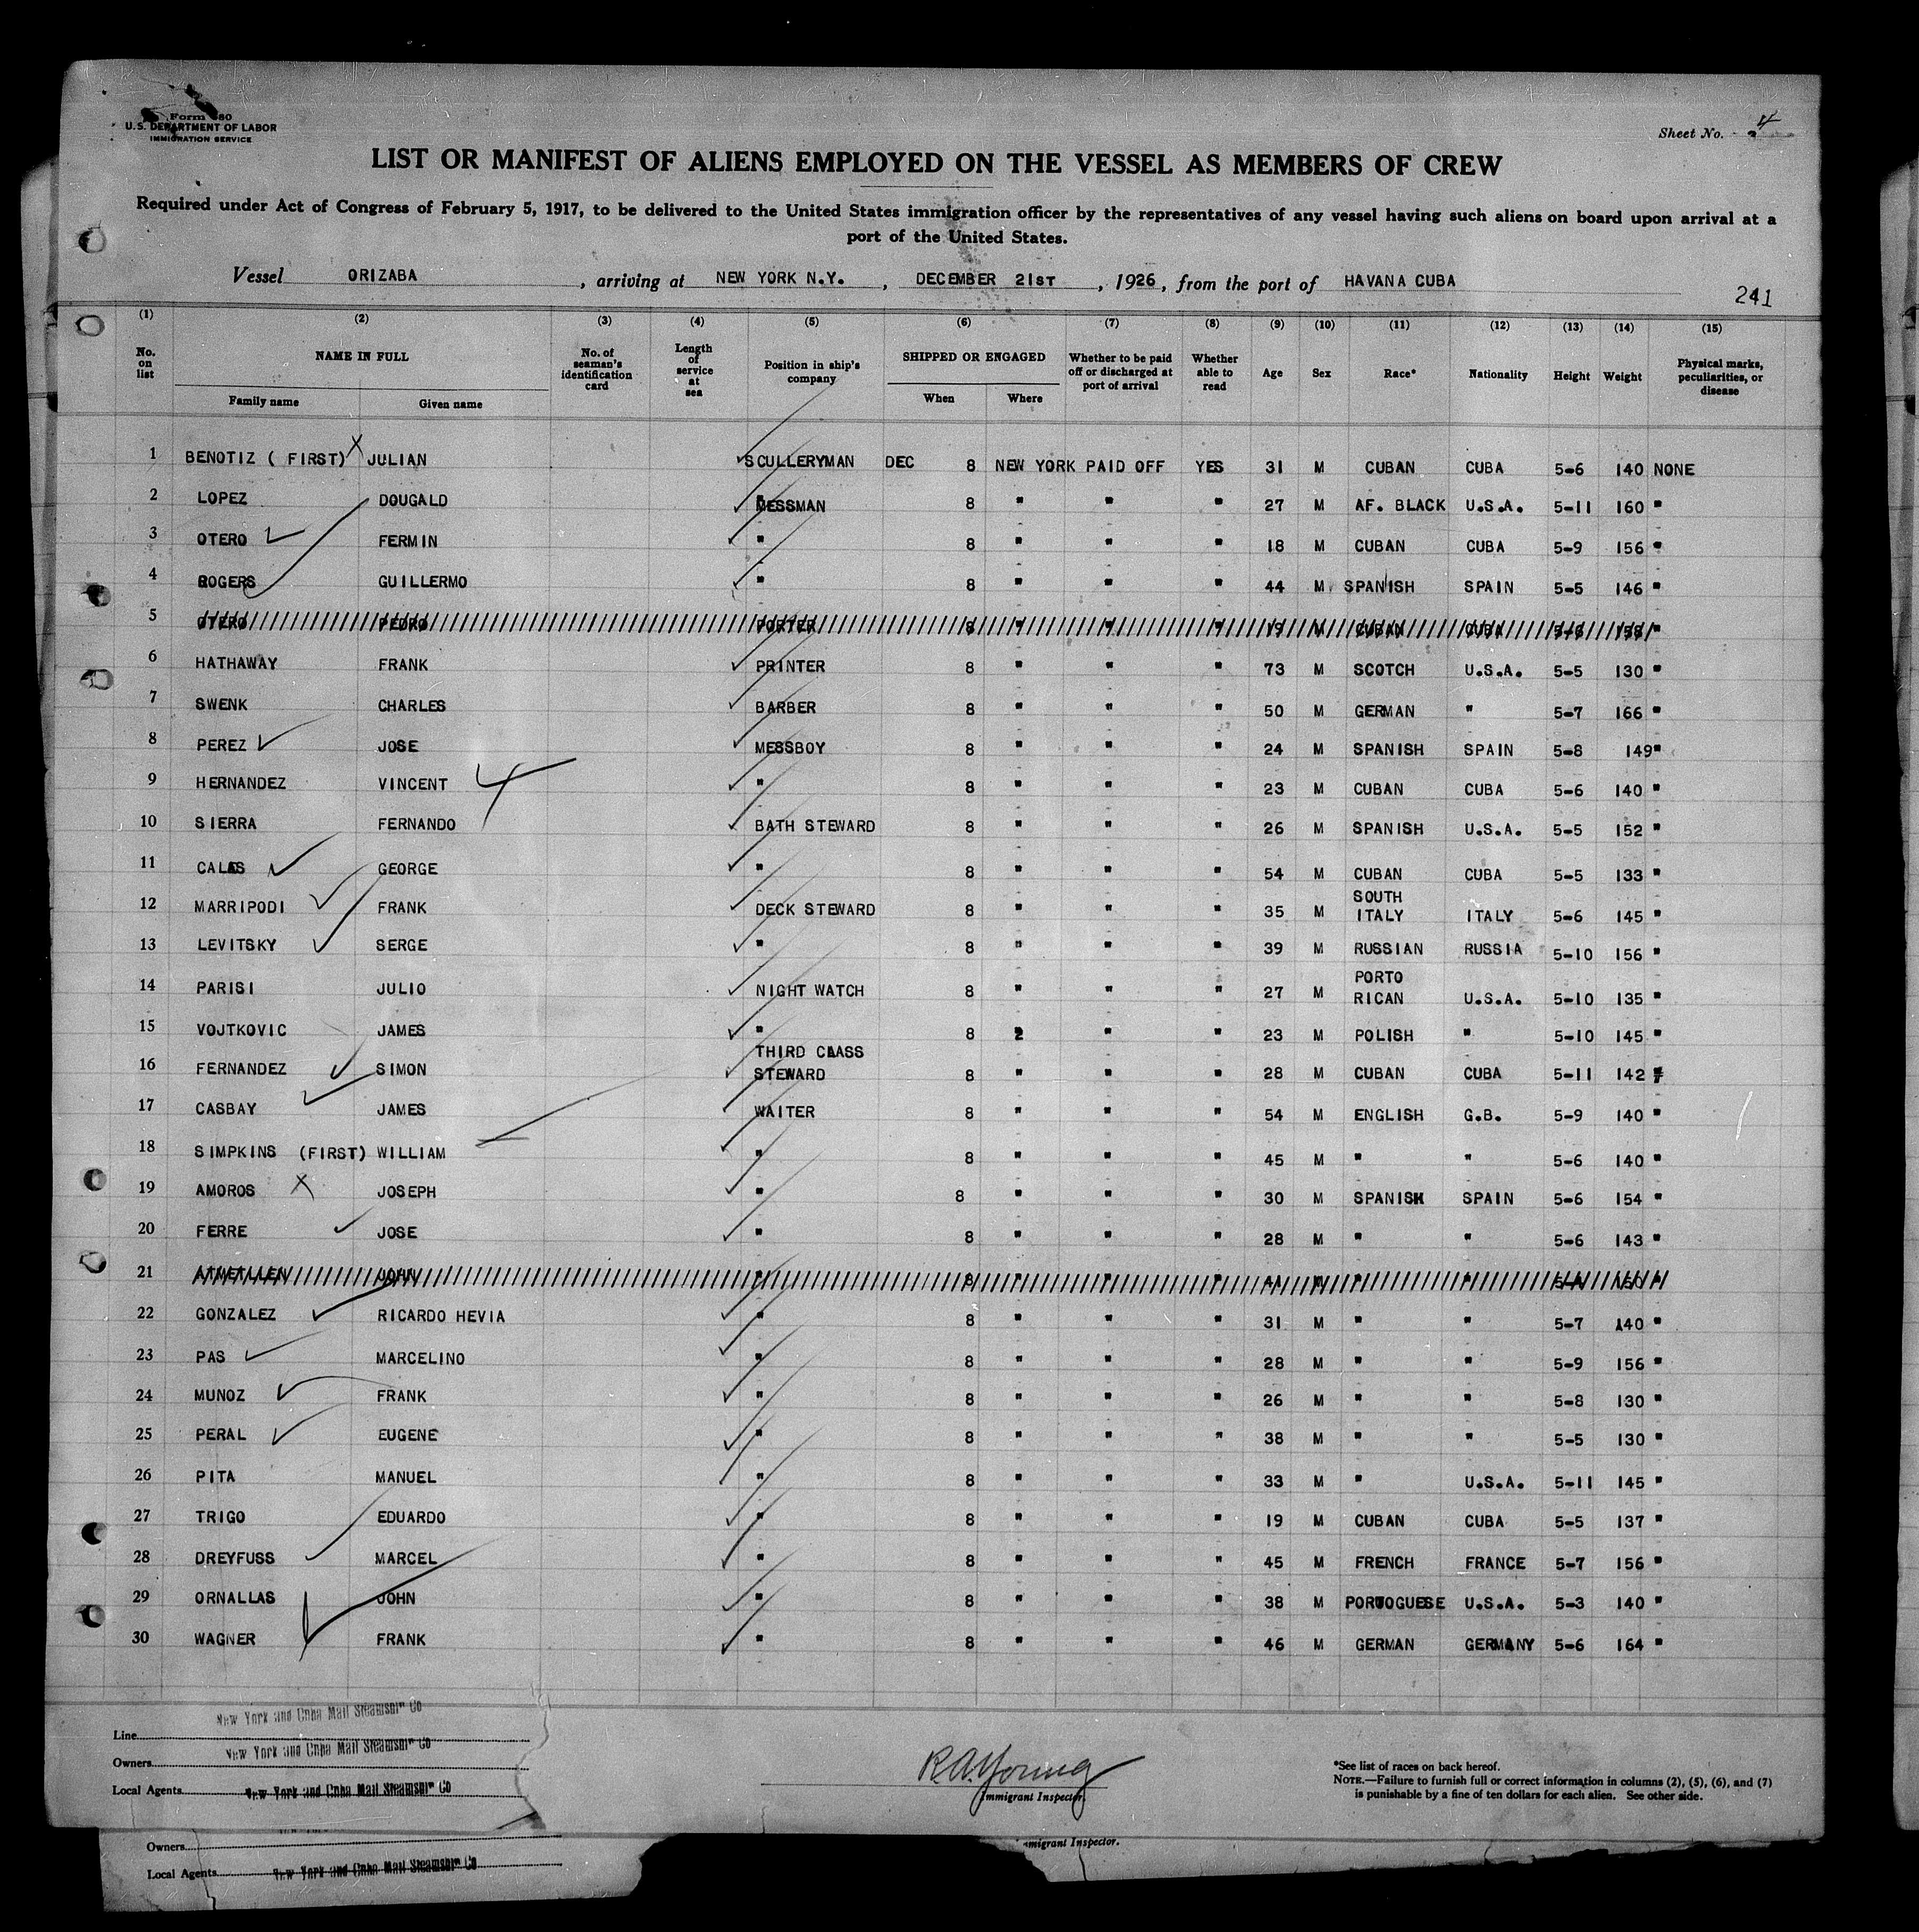 Form 680
U.S. DEPARTMENT OF LABOR
IMMIGRATION SERVICE
Sheet No. 4
LIST OR MANIFEST OF ALIENS EMPLOYED ON THE VESSEL AS MEMBERS OF CREW
Required under Act of Congress of February 5, 1917, to be delivered to the United States immigration officer by the representatives of any vessel having such aliens on board upon arrival at a
port of the United States.
Vessel ORIZABA, arriving at NEW YORK N.Y., DECEMBER 21ST, 1926, from the port of HAVANA CUBA
241
(1) (2) (3) (4) (5) (6) (7) (8) (9) (10) (11) (12) (13) (14) (15)
No. on list NAME IN FULL Family name Given name No. of seaman's identification card Length of service at sea Position in ship's company SHIPPED OR ENGAGED When Where Whether to be paid off or discharged at port of arrival Whether able to read Age Sex Race* Nationality Height Weight Physical marks, peculiarities, or disease
1 BENOTIZ ( FIRST) X JULIAN SCULLERYMAN DEC 8 NEW YORK PAID OFF YES 31 M CUBAN CUBA 5-6 140 NONE
2 LOPEZ DOUGALD MESSMAN 8 " " " 27 M AF. BLACK U.S.A. 5-11 160 "
3 OTERO FERMIN " 8 " " " 18 M CUBAN CUBA 5-9 156 "
4 ROGERS GUILLERMO " 8 " " " 44 M SPANISH SPAIN 5-5 146 "
5 OTERO PEDRO PORTER 8 " " " 19 M CUBAN CUBA "
6 HATHAWAY FRANK PRINTER 8 " " " 73 M SCOTCH U.S.A. 5-5 130 "
7 SWENK CHARLES BARBER 8 " " " 50 M GERMAN " 5-7 166 "
8 PEREZ JOSE MESSBOY 8 " " " 24 M SPANISH SPAIN 5-8 149 "
9 HERNANDEZ VINCENT " 8 " " " 23 M CUBAN CUBA 5-6 140 "
10 SIERRA FERNANDO BATH STEWARD 8 " " " 26 M SPANISH U.S.A. 5-5 152 "
11 GEORGE " 8 " " " 54 M CUBAN CUBA 5-5 133 "
12 MARRIPODI FRANK DECK STEWARD 8 " " " 35 M SOUTH ITALY ITALY 5-6 145 "
13 LEVITSKY SERGE " 8 " " " 39 M RUSSIAN RUSSIA 5-10 156 "
14 PARISI JULIO NIGHT WATCH 8 " " " 27 M PORTO RICAN U.S.A. 5-10 135 "
15 VOJTKOVIC JAMES " 8 2 " " 23 M POLISH " 5-10 145 "
16 FERNANDEZ SIMON THIRD CLASS STEWARD 8 " " " 28 M CUBAN CUBA 5-11 142
17 CASBAY JAMES WAITER 8 " " " 54 M ENGLISH G.B. 5-9 140 "
18 SIMPKINS (FIRST) WILLIAM " 8 " " " 45 M " " 5-6 140 "
19 AMOROS X JOSEPH " 8 " " " 30 M SPANISH SPAIN 5-6 154 "
20 FERRE JOSE " 8 " " " 28 M " " 5-6 143 "
21 JOHN " 8 " " " " " "
22 GONZALEZ RICARDO HEVIA " 8 " " " 31 M " " 5-7 140 "
23 PAS MARCELINO " 8 " " " 28 M " " 5-9 156 "
24 MUNOZ FRANK " 8 " " " 26 M " " 5-8 130 "
25 PERAL EUGENE " 8 " " " 38 M " " 5-5 130 "
26 PITA MANUEL " 8 " " " 33 M " U.S.A. 5-11 145 "
27 TRIGO EDUARDO " 8 " " " 19 M CUBAN CUBA 5-5 137 "
28 DREYFUSS MARCEL " 8 " " " 45 M FRENCH FRANCE 5-7 156 "
29 ORNALLAS JOHN " 8 " " " 38 M PORTUGUESE U.S.A. 5-3 140 "
30 WAGNER FRANK " 8 " " " 46 M GERMAN GERMANY 5-6 164 "
Line New York and Cuba Mail Steamship Co
Owners New York and Cuba Mail Steamship Co
Local Agents New York and Cuba Mail Steamship Co
R.A. Young
Immigrant Inspector.
*See list of races on back hereof.
NOTE.—Failure to furnish full or correct information in columns (2), (5), (6), and (7)
is punishable by a fine of ten dollars for each alien. See other side.
Owners
Immigrant Inspector.
Local Agents New York and Cuba Mail Steamship Co